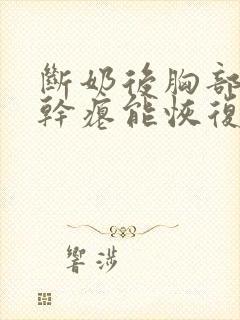 斷奶後胸部
幹癟能恢復
響涉